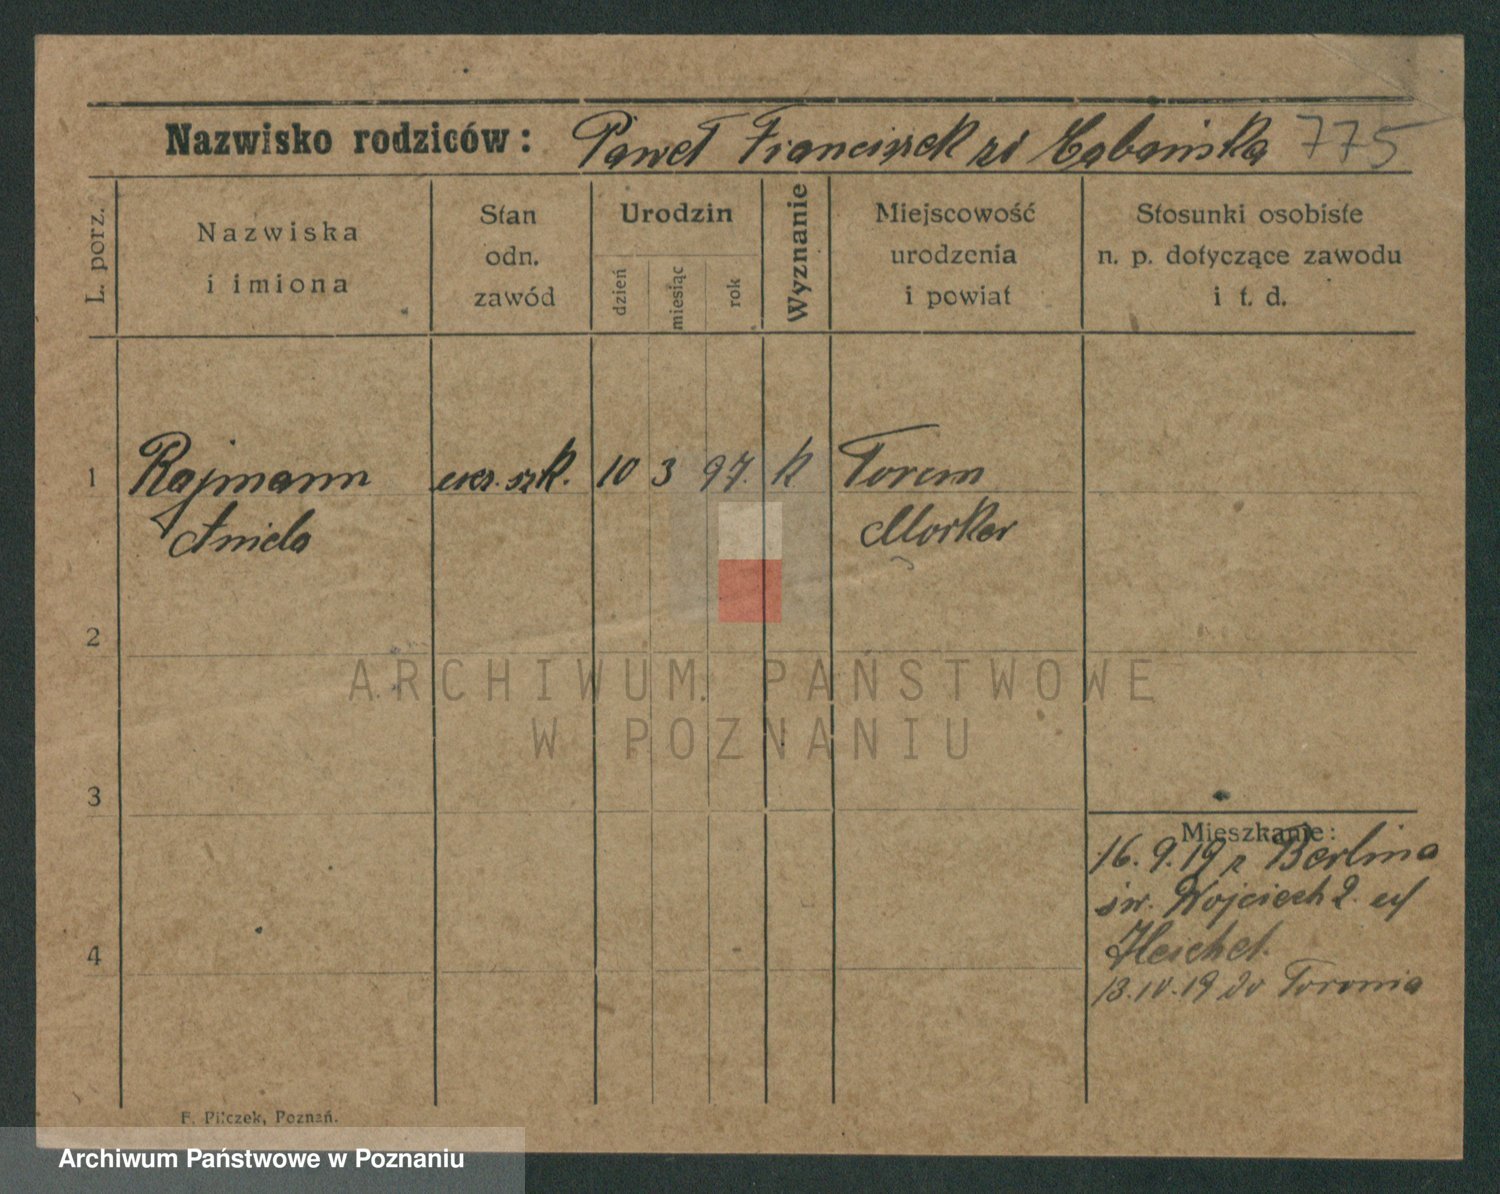 Nazwisko rodziców: Paweł Franciszek zd 775
L. porz.
Nazwiska
i imiona
Stan
odn.
zawód
Urodzin
dzień
miesiąc
rok
Wyznanie
Miejscowość
urodzenia
i powiat
Stosunki osobiste
n. p. dotyczące zawodu
i t. d.
1 Rajmann ucz. szk. 10 3 97. k Torun
Aniela
2
ARCHIWUM PAŃSTWOWE
W POZNANIU
3
Mieszkanie:
16. 9. 19 z Berlina
św. Wojciech 2.
4
13.10.19 do Torunia
F. Pilczek, Poznań.
Archiwum Państwowe w Poznaniu